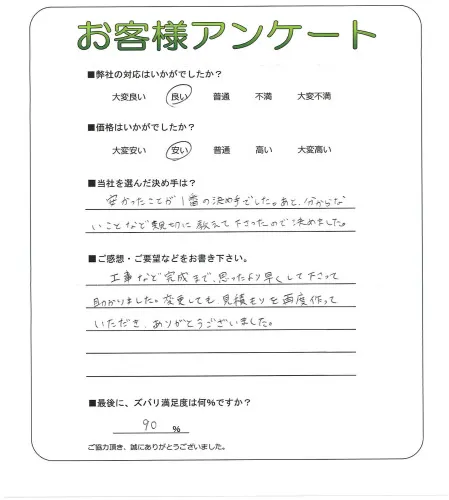 お客様アンケート
■弊社の対応はいかがでしたか？
大変良い 良い 普通 不満 大変不満
■価格はいかがでしたか？
大変安い 安い 普通 高い 大変高い
■当社を選んだ決め手は？
安かったことが1番の決め手でした。あと、分からな
いことなど親切に教えて下さったので決めました。
■ご感想・ご要望などをお書き下さい。
工事など完成まで、思ったより早くして下さって
助かりました。変更しても、見積もりを再度作って
いただき、ありがとうございました。
■最後に、ズバリ満足度は何%ですか？
90 %
ご協力頂き、誠にありがとうございました。